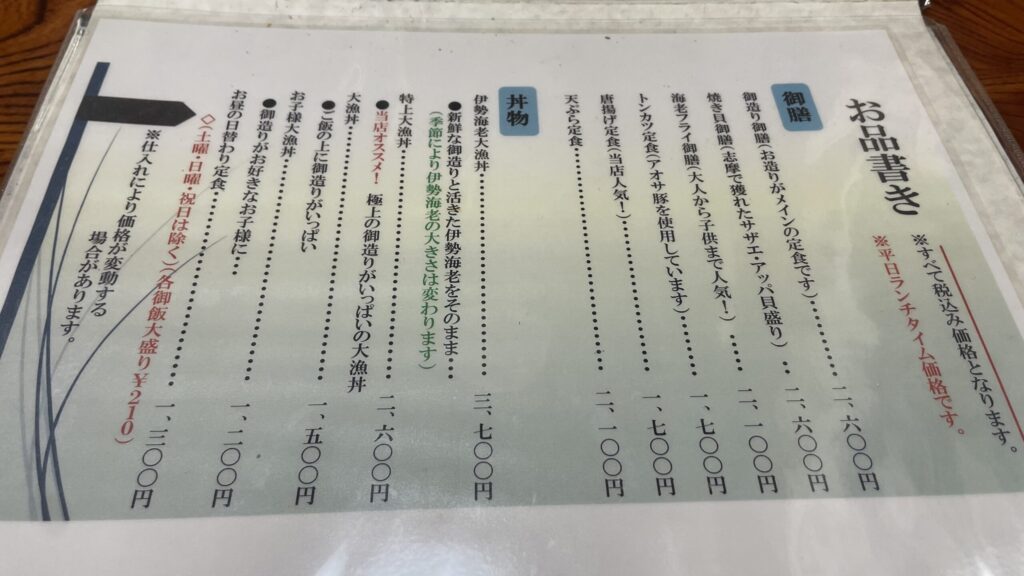 ※すべて税込み価格となります。
※平日ランチタイム価格です。
お品書き
御膳
御造り御膳(お造りがメインの定食です)………二、六〇〇円
焼き貝御膳(志摩で獲れたサザエ・アッパ貝盛り)…二、六〇〇円
海老フライ御膳(大人から子供まで人気!)……二、一〇〇円
トンカツ定食(アオサ豚を使用しています)………一、七〇〇円
唐揚げ定食(当店人気!)………………一、七〇〇円
天ぷら定食………………………二、一〇〇円
丼物
伊勢海老大漁丼………………………三、七〇〇円
●新鮮な御造りと活きた伊勢海老をそのまま…
(季節により伊勢海老の大きさは変わります)
特上大漁丼………………………二、六〇〇円
●当店オススメ! 極上の御造りがいっぱいの大漁丼
大漁丼…………………………一、五〇〇円
●ご飯の上に御造りがいっぱい
お子様大漁丼………………………一、二〇〇円
●御造りがお好きなお子様に…
お昼の日替わり定食……………………一、三〇〇円
◇(土曜・日曜・祝日は除く)(各御飯大盛り¥210)
※仕入れにより価格が変動する
場合があります。